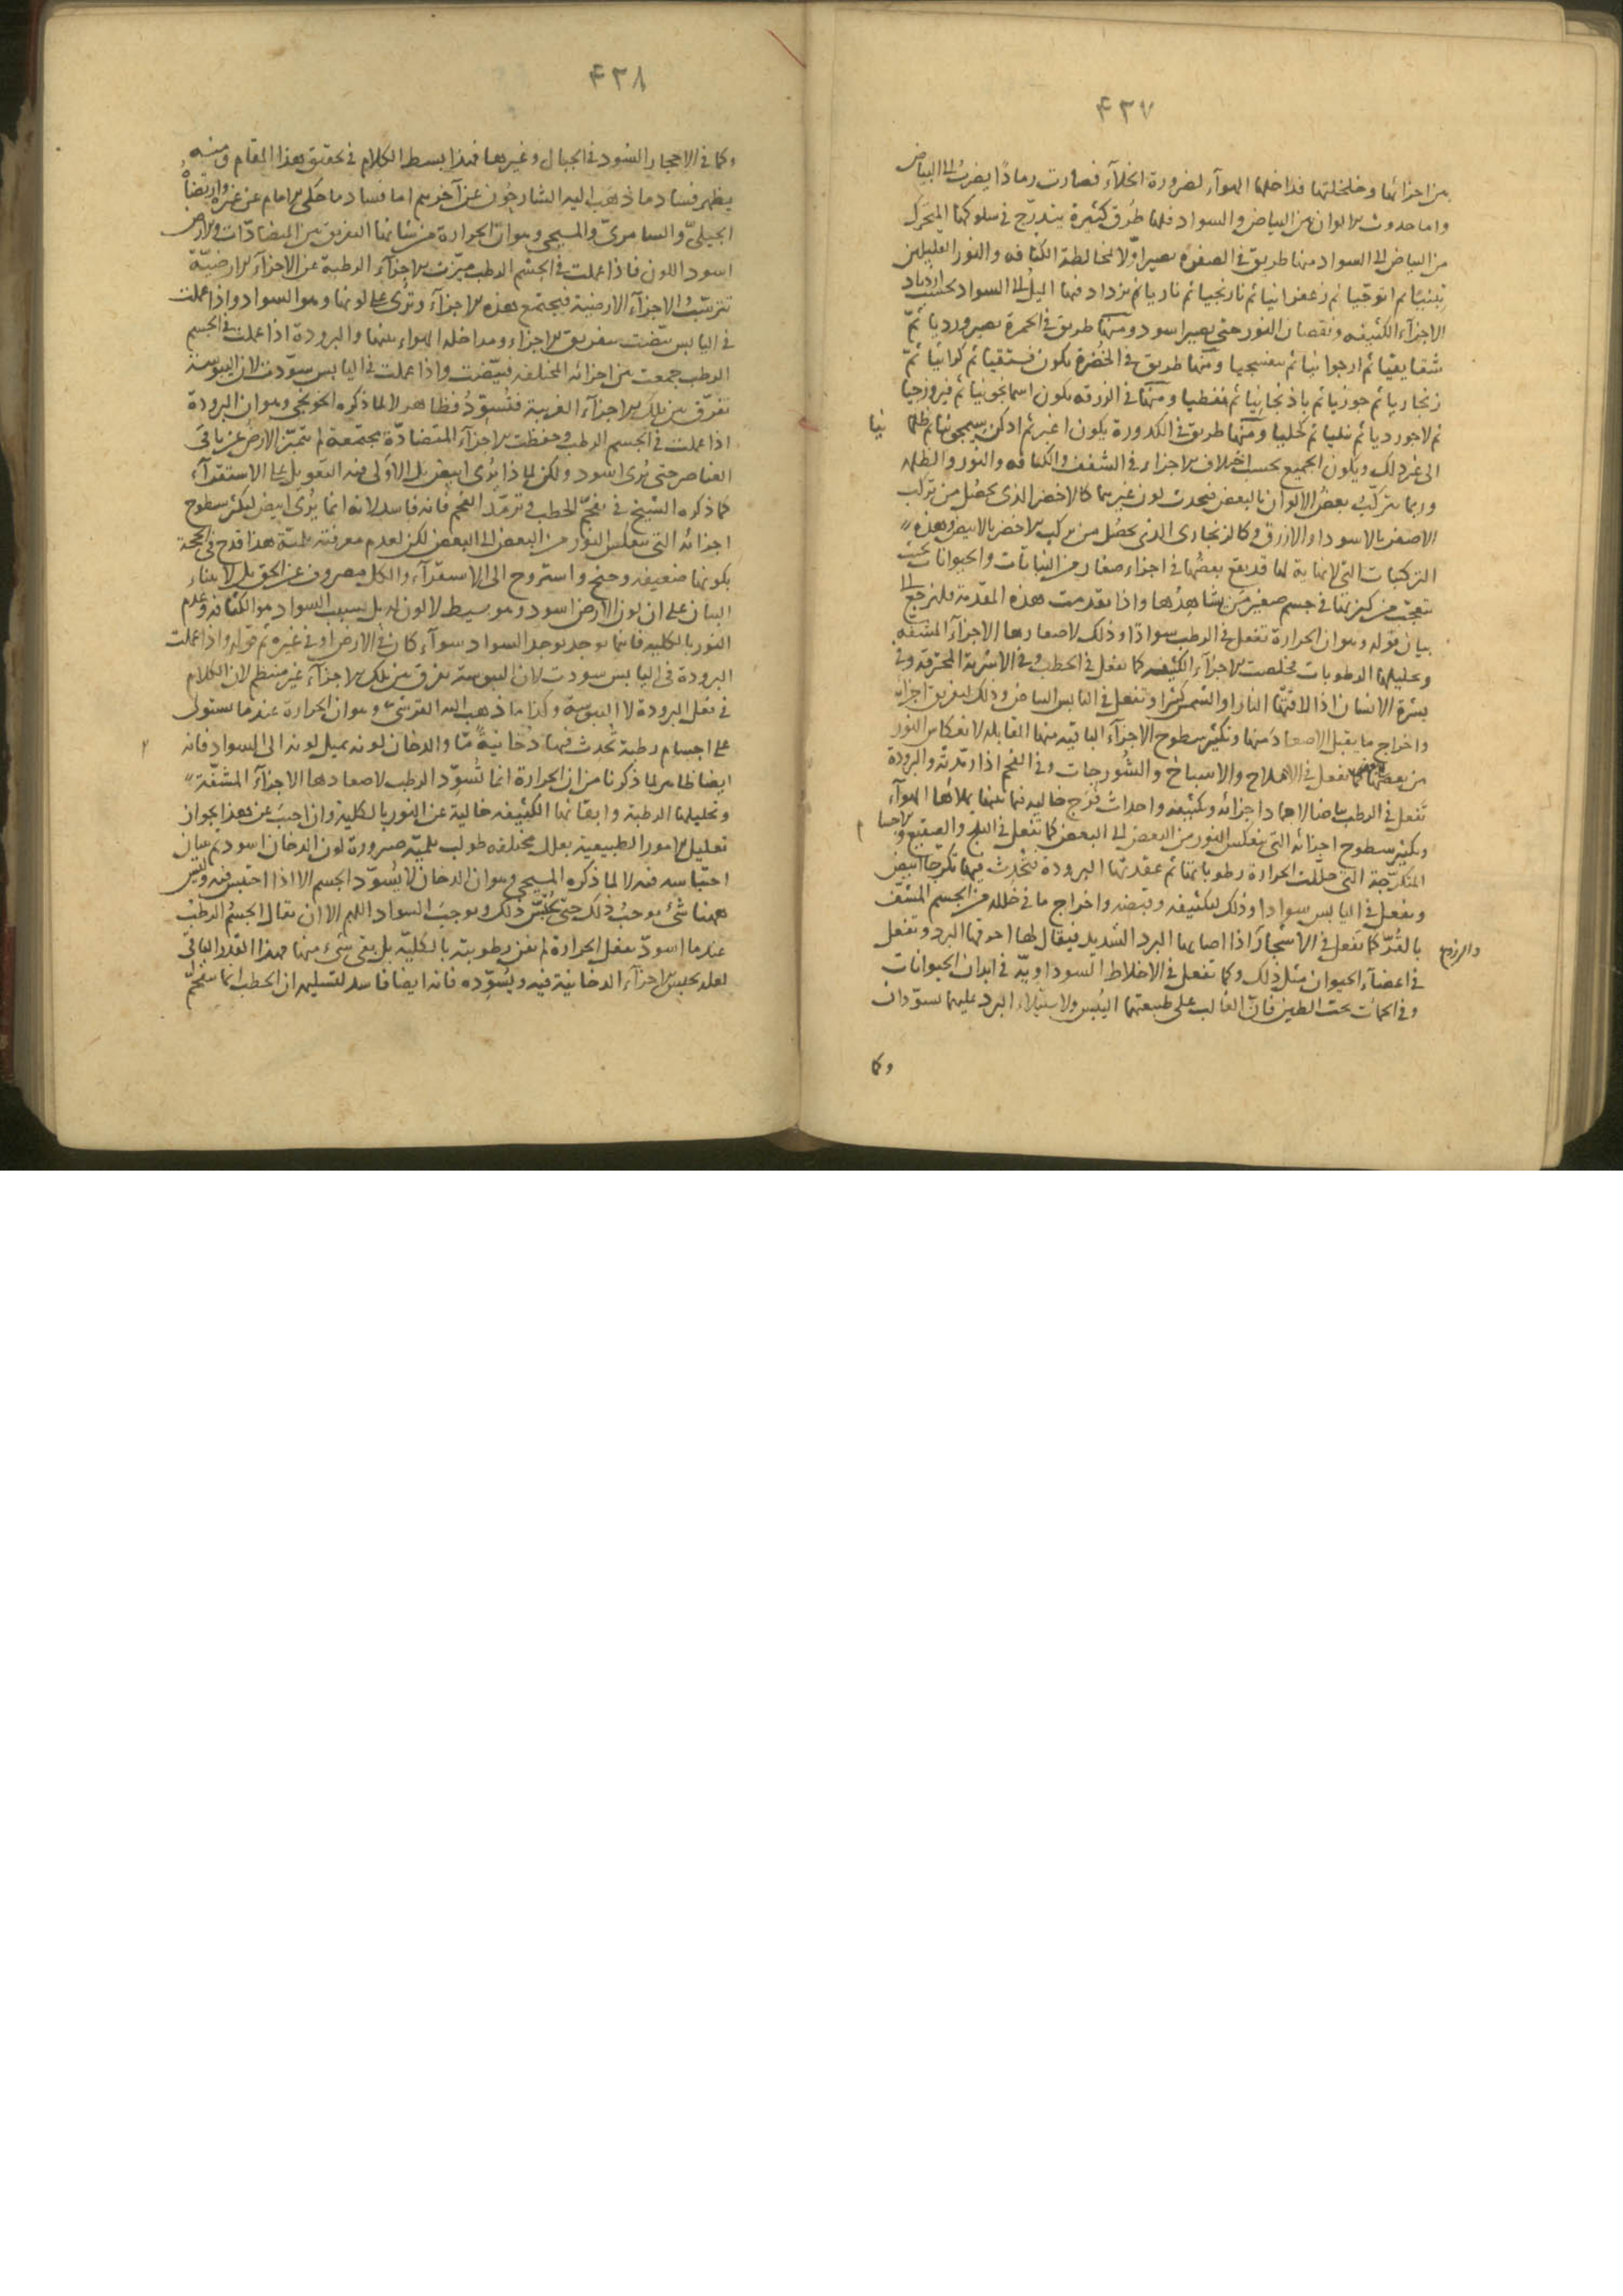 ٤٣٧
من اجزائها وخلخلتها فداخلها الهوآء لضرورة الخلآء فصارت رمادًا يضرب الى البياض
واما حدوث الالوان من البياض والسواد فلها طرق كثيرة يتدرج فى سلوكها المتحرك
من البياض الى السواد منها طريق فى الصفرة يصير اوّلا لمخالطة الكثافه والنور القليلين
تبنيًا ثم اترجيا ثم زعفرانيا ثم نارنجيا ثم ناريا ثم يزداد فيها الميل الى السواد بحسب ازدياد
الاجزآء الكثيفه ونقصان النور حتى يصير اسود ومنها طريق فى الحمرة يصير ورديا ثمّ
شقايقيا ثم ارجوانيا ثم بنفسجيا ومنها طريق فى الخضرة يكون فستقيا ثم كراثيا ثمّ
زنجاريا ثم جوزيا ثم باذنجانيا ثم نفطيا ومنها فى الزرقه يكون اسمانجونيا ثم فيروزجيا
ثم لاجورديا ثم نيليا ثم كحليا ومنها طريق فى الكدورة يكون اغبر ثم ادكن ثم
الى غير ذلك ويكون الجميع بحسب اختلاف الاجزاء فى الشفف والكثافه والنور والظلمه
وربما يتركب بعض الالوان بالبعض فيحدث لون غيرهما كالاخضر الذى يحصل من تركب
الاصفر بالاسود او الازرق وكالزنجارى الذى يحصل من تركب الاخضر بالابيض وهذه
التركيبات التى لا نهاية لها قد يقع بعضها فى اجزاء صغار من النباتات والحيوانات بحيث
يتعجب من كثرتها فى جسم صغير من يشاهدها واذا تقدمت هذه المقدمة فلنرجع الى
بيان قوله وهو ان الحرارة تفعل فى الرطب سوادًا وذلك لاصعادها الاجزآء المشفه
وتحليلها الرطوبات فخلصت الاجزآء الكثيفه كما تفعل فى الحطب وفى الاشربة المحترقة وفى
بشرة الانسان اذا لاقتها النار او الشمس كثيرا وتفعل فى اليابس البياض وذلك لتفريق اجزائه
واخراج ما يقبل الاصعاد منها وتكثير سطوح الاجزآء الباقيه منها المقابله لانعكاس النور
من بعضها كما تفعل فى الاملاح والاسباخ والشورجات وفى الفحم اذا رمّدته والبرودة
تفعل فى الرطب بياضا لاجماد اجزائه وتكثيفه واحداث فرج خاليه فيما بينها يملاها الهوآء
وتكثير سطوح اجزائه التى ينعكس النور من البعض الى البعض كما تفعل فى الثلج والصقيع و
المتكرّجة التى حلّلت الحرارة رطوباتها ثم عقدتها البرودة فيحدث فيها تكرجا ابيض
وتفعل فى اليابس سوادا وذلك لتكثيفه وقبضه واخراج ما فى خلله من الجسم المشف
بالقوّ كما تفعل فى الاشجار اذا اصابها البرد الشديد فيقال لها احرقها البرد وتفعل
فى اعضآء الحيوان مثل ذلك وكما تفعل فى الاخلاط السوداويّة فى ابدان الحيوانات
وفى الحمأت تحت الطين فان الغالب على طبيعتهما اليبس ولاستيلاء البرد عليهما يسوّدان
والزروع
وكما
٤٣٨
وكما فى الاحجار السود فى الجبال وغيرها فهذا بسط الكلام فى تحقيق هذا المقام ومنه
يظهر فساد ما ذهب اليه الشارحون عن آخرهم اما فساد ما حكى الامام عن غيره وارتضاه
الجيلىّ والسامرىّ والمسيحى وهو ان الحرارة من شانها التفريق بين المتضادّات والارض
اسود اللون فاذا عملت فى الجسم الرطب ميّزت الاجزآء الرطبة عن الاجزآء الارضيّة
تترسّب الاجزآء الارضية فيجتمع هذه الاجزآء وترى على لونها وهو السواد واذا عملت
فى اليابس بيّضت بتفريق الاجزاء ومداخلة الهواء بينها والبرودة اذا عملت فى الجسم
الرطب جمعت بين اجزائه المختلفه فبيّضت واذا عملت فى اليابس سوّدت لان اليبوسة
تفرّق بين تلك الاجزآء الغريبة فتسوّد فظاهر لا لما ذكره الخونجى وهو ان البرودة
اذا عملت فى الجسم الرطب وحفظت الاجزآء المتضادّة مجتمعة لم يتميّز الارض عن باقى
العناصر حتى يرى اسود ولكن لماذا يرى ابيض بل الاولى فيه التعويل على الاستقرآء
كما ذكره الشيخ فى تفحّم الحطب وترمّد الفحم فانه فاسد لانه انما يُرى ابيض لتكثر سطوح
اجزائه التى ينعكس النور من البعض الى البعض لكن لعدم معرفته بلميّة هذا قدح فى الحجة
بكونها ضعيفه وجنح واستروح الى الاستقرآء والكل مصروف عن الحق بل لابتناء
البيان على ان لون الارض اسود وهو بسيط لا لون له بل سبب السواد هو الكثافة وعدم
النور بالكليه فاينما يوجد يوجد السواد سوآء كان فى الارض او فى غيره ثم قوله واذا عملت
البرودة فى اليابس سودت لان اليبوسة تفرق بين تلك الاجزآء غير منتظم لان الكلام
فى فعل البرودة لا اليبوسة وكذا ما ذهب اليه القرشى وهو ان الحرارة عندما تستولى
على اجسام رطبة تحدث فيها دخانيةً مّا والدخان لونه يميل لونه الى السواد فانه
ايضا ظاهر لما ذكرنا من ان الحرارة انما تسوّد الرطب لاصعادها الاجزآء المشفّة
وتحليلها الرطبة وابقائها الكثيفه خالية عن النور بالكلية وان اجيب عن هذا بجواز
تعليل الامور الطبيعية بعلل مختلفه طولب بلميّه صيرورة لون الدخان اسود ثم ببيان
احتباسه فيه لا لما ذكره المسيحى وهو ان الدخان لا يسوّد الجسم الا اذا احتبس فيه وليس
ههنا شئ يوجب ذلك حتى يحتبس ذلك ويوجب السواد اللهم الا ان يقال الجسم الرطب
عندما اسودّ بفعل الحرارة لم تفن رطوبته بالكليّة بل بقى شئ منها فهذا القدر الباقى
لعله يحبس اجزآء الدخانية فيه ويسوّده فانه ايضا فاسد لتسليمه ان الحطب انما يتفحّم